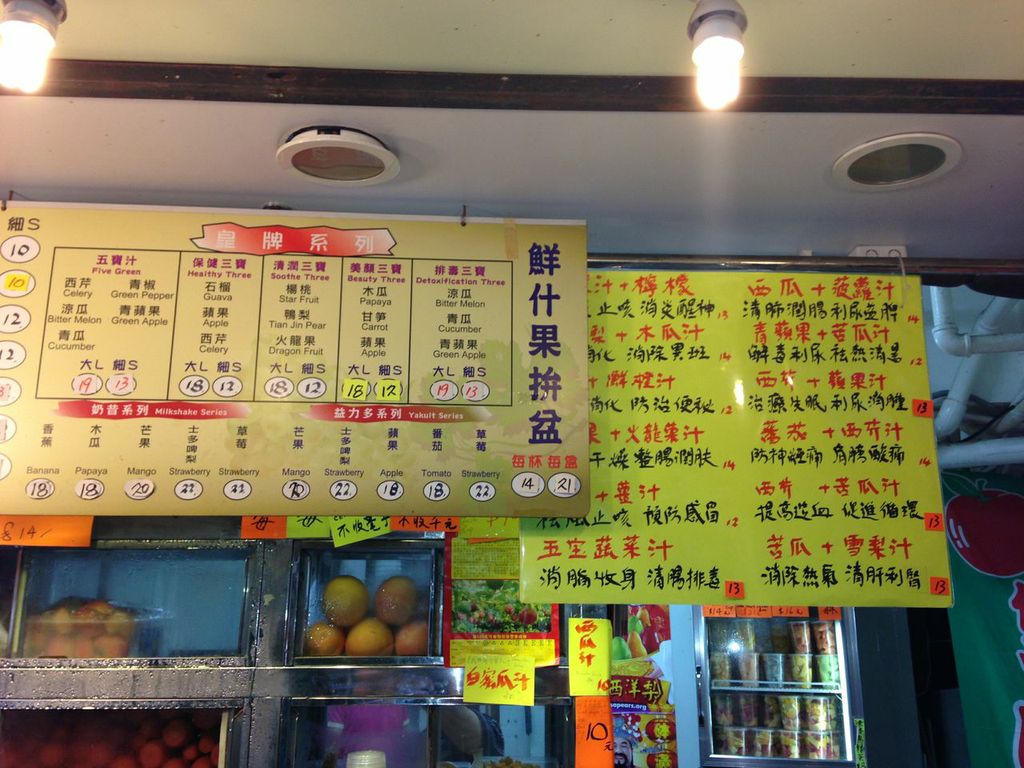 細 S
10
10
12
皇牌系列
五寶汁
Five Green
西芹 青椒
Celery Green Pepper
涼瓜 青蘋果
Bitter Melon Green Apple
青瓜
Cucumber
大L 細S
19 13
保健三寶
Healthy Three
石榴
Guava
蘋果
Apple
西芹
Celery
大L 細S
18 12
清潤三寶
Soothe Three
楊桃
Star Fruit
鴨梨
Tian Jin Pear
火龍果
Dragon Fruit
大L 細S
18 12
美顏三寶
Beauty Three
木瓜
Papaya
甘笋
Carrot
蘋果
Apple
大L 細S
18 12
排毒三寶
Detoxification Three
涼瓜
Bitter Melon
青瓜
Cucumber
青蘋果
Green Apple
大L 細S
19 13
奶昔系列 Milkshake Series
香蕉 木瓜 芒果 士多啤梨 草莓
Banana Papaya Mango Strawberry Strawberry
18 18 20 22 22
益力多系列 Yakult Series
芒果 士多啤梨 蘋果 番茄 草莓
Mango Strawberry Apple Tomato Strawberry
20 22 18 18 22
鮮什果拚盆
每杯 每盒
14 21
汁+檸檬
止咳 消炎醒神 13
梨+木瓜汁
消化 消除黑斑 14
+鮮橙汁
消化 防治便秘 12
+火龍果汁
干燥整腸潤肤 14
+薑汁
祛風止咳 預防感冒 12
五宝蔬菜汁
消脂收身 清腸排毒 13
西瓜+菠蘿汁
清肺潤腸利尿益脾 14
青蘋果+苦瓜汁
解毒利尿祛熱消暑 12
西芹+蘋果汁
治療失眠利尿消腫 13
蕃茄+西芹汁
14
西芹+苦瓜汁
提高造血 促進循環 13
苦瓜+雪梨汁
消除熱氣 清肝利腎 13
$14/-
西瓜汁
10
白蜜瓜汁
西洋梨
10元